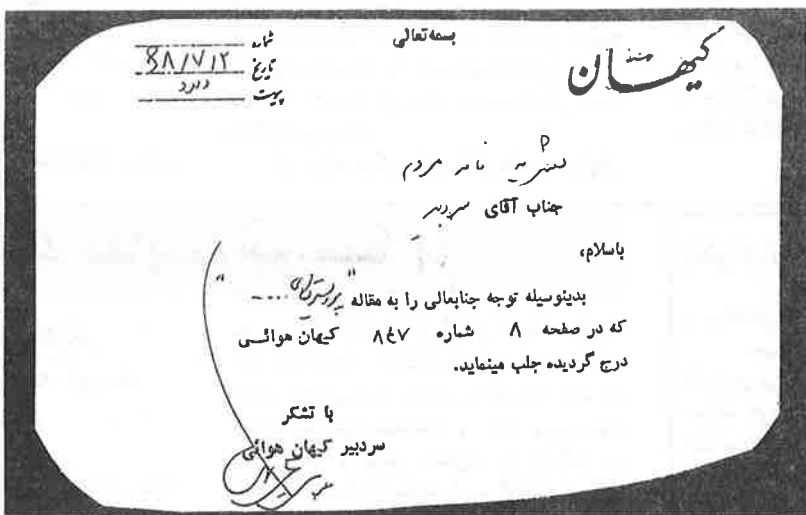 بسمه تعالی
کیهان
شماره
تاریخ ۸۸/۷/۲
پیوست ندارد
نشریه نامه مردم
جناب آقای سردبیر
باسلام،
بدینوسیله توجه جنابعالی را به مقاله "....."
که در صفحه ۸ شماره ۸۴۷ کیهان هوائی
درج گردیده جلب مینماید.
با تشکر
سردبیر کیهان هوائی